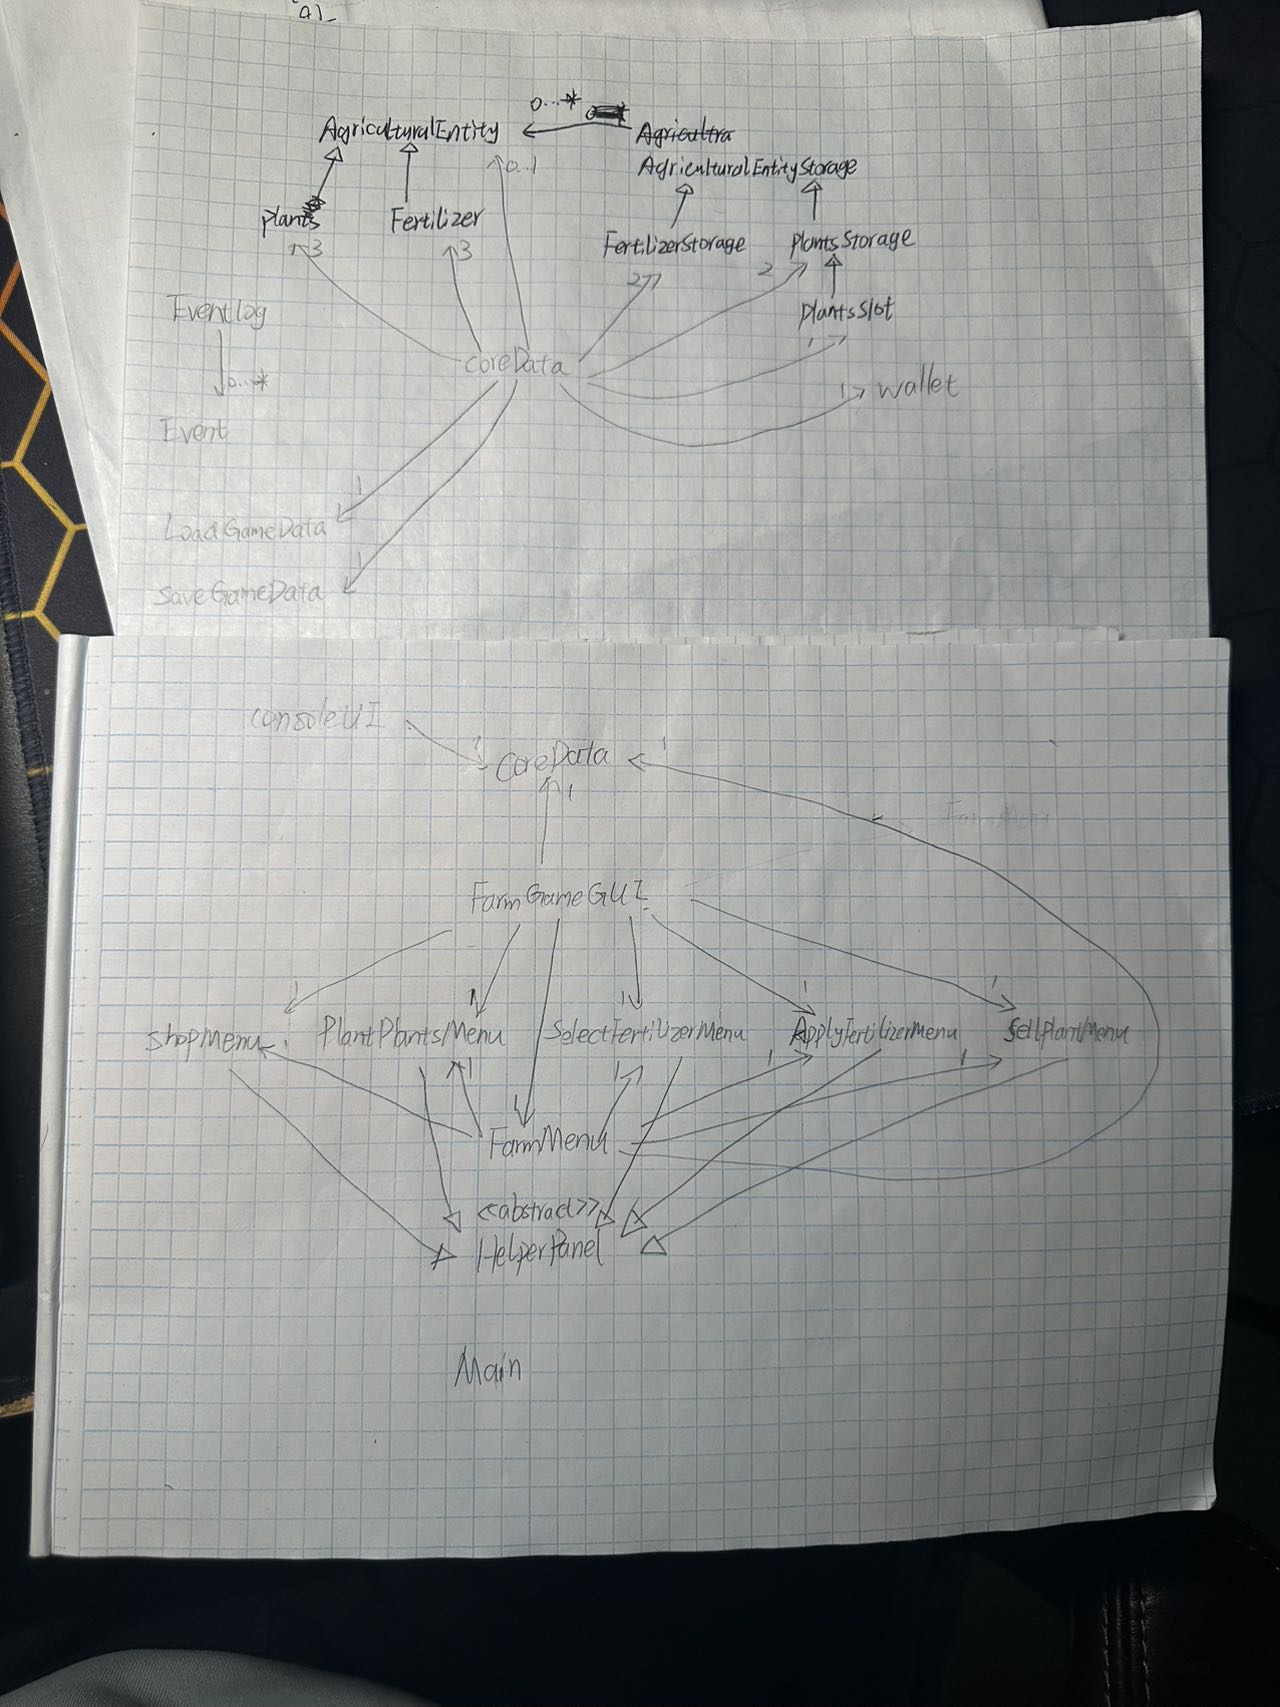 0...*
AgriculturalEntity
Agricultra
AgriculturalEntityStorage
0..1
Plants
Fertilizer
FertilizerStorage
PlantsStorage
3
3
2
2
PlantsSlot
EventLog
1
coreData
0...*
1
wallet
Event
1
LoadGameData
1
SaveGameData
consoleUI
1
CoreData
1
1
FarmMenu
FarmGameGUI
1
1
1
1
1
ShopMenu
1
PlantPlantsMenu
SelectFertilizerMenu
ApplyFertilizerMenu
SellPlantMenu
1
1
1
1
FarmMenu
<<abstract>>
HelperPanel
Main